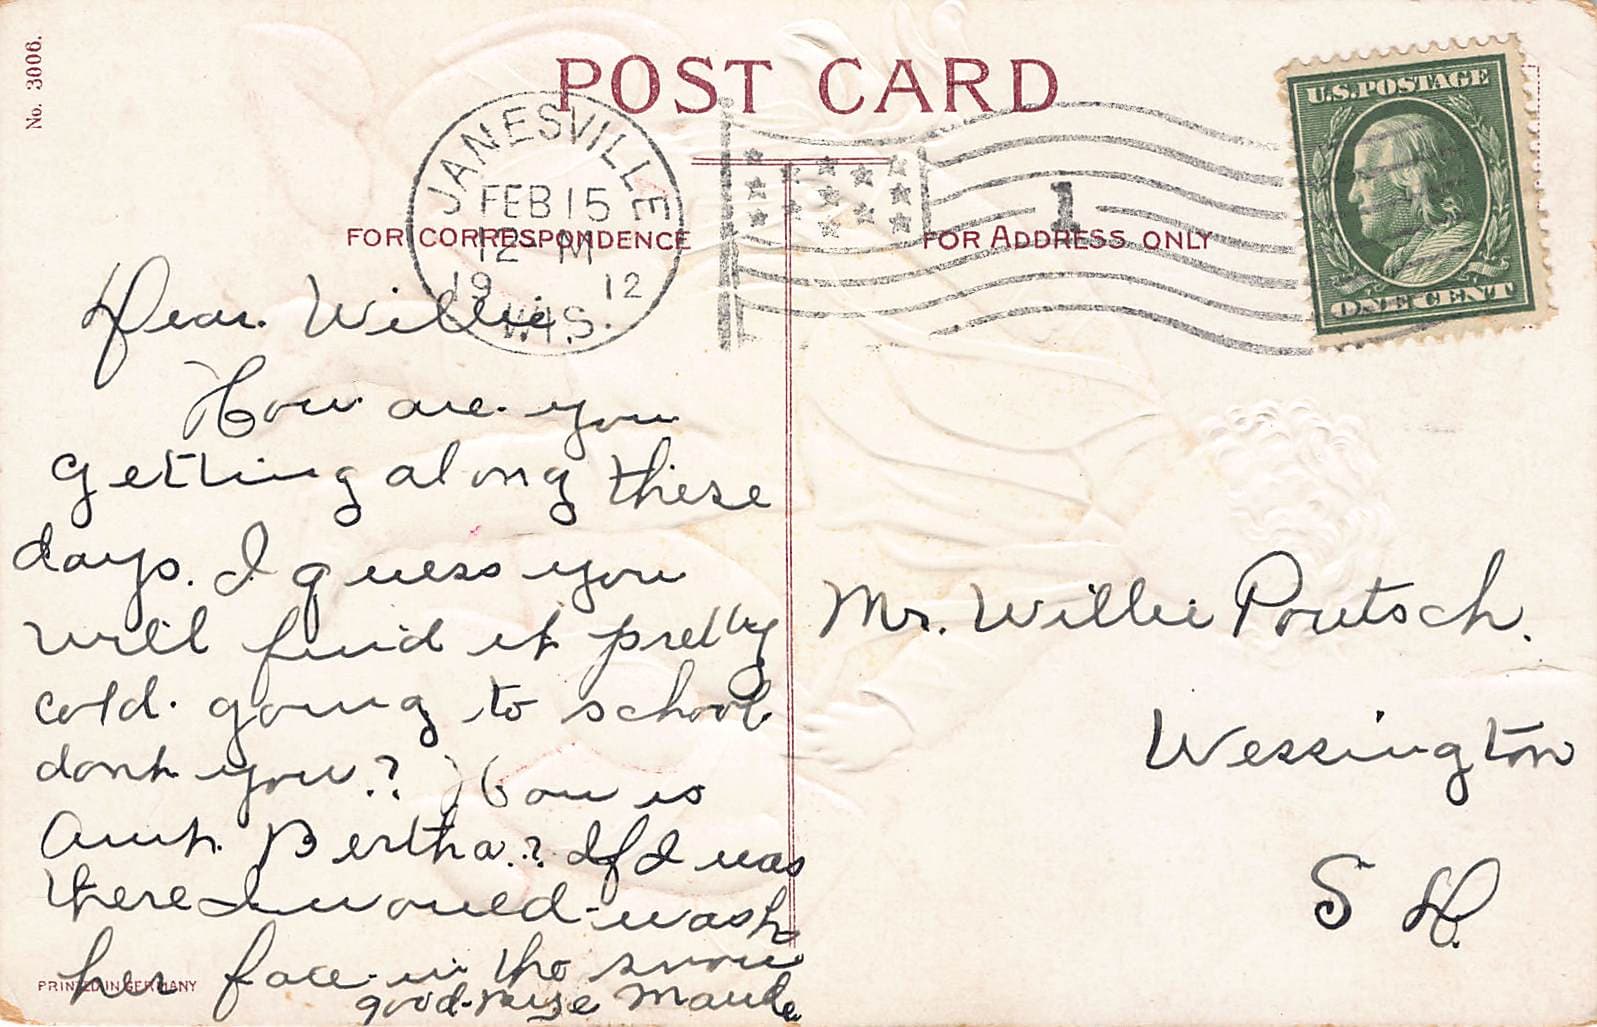 No. 3006.
POST CARD
U.S. POSTAGE
ONE CENT
JANESVILLE
FEB 15
12 M
19 12
WIS.
1
FOR CORRESPONDENCE
FOR ADDRESS ONLY
Dear. Willie.
How are you
getting along these
days. I guess you
will find it pretty
cold. going to school
dont you? How is
Aunt. Bertha.? If I was
there I would wash
her face in the snow
good-
Maude
Mr. Willie Poutsch.
Wessington
S D.
PRINTED IN GERMANY